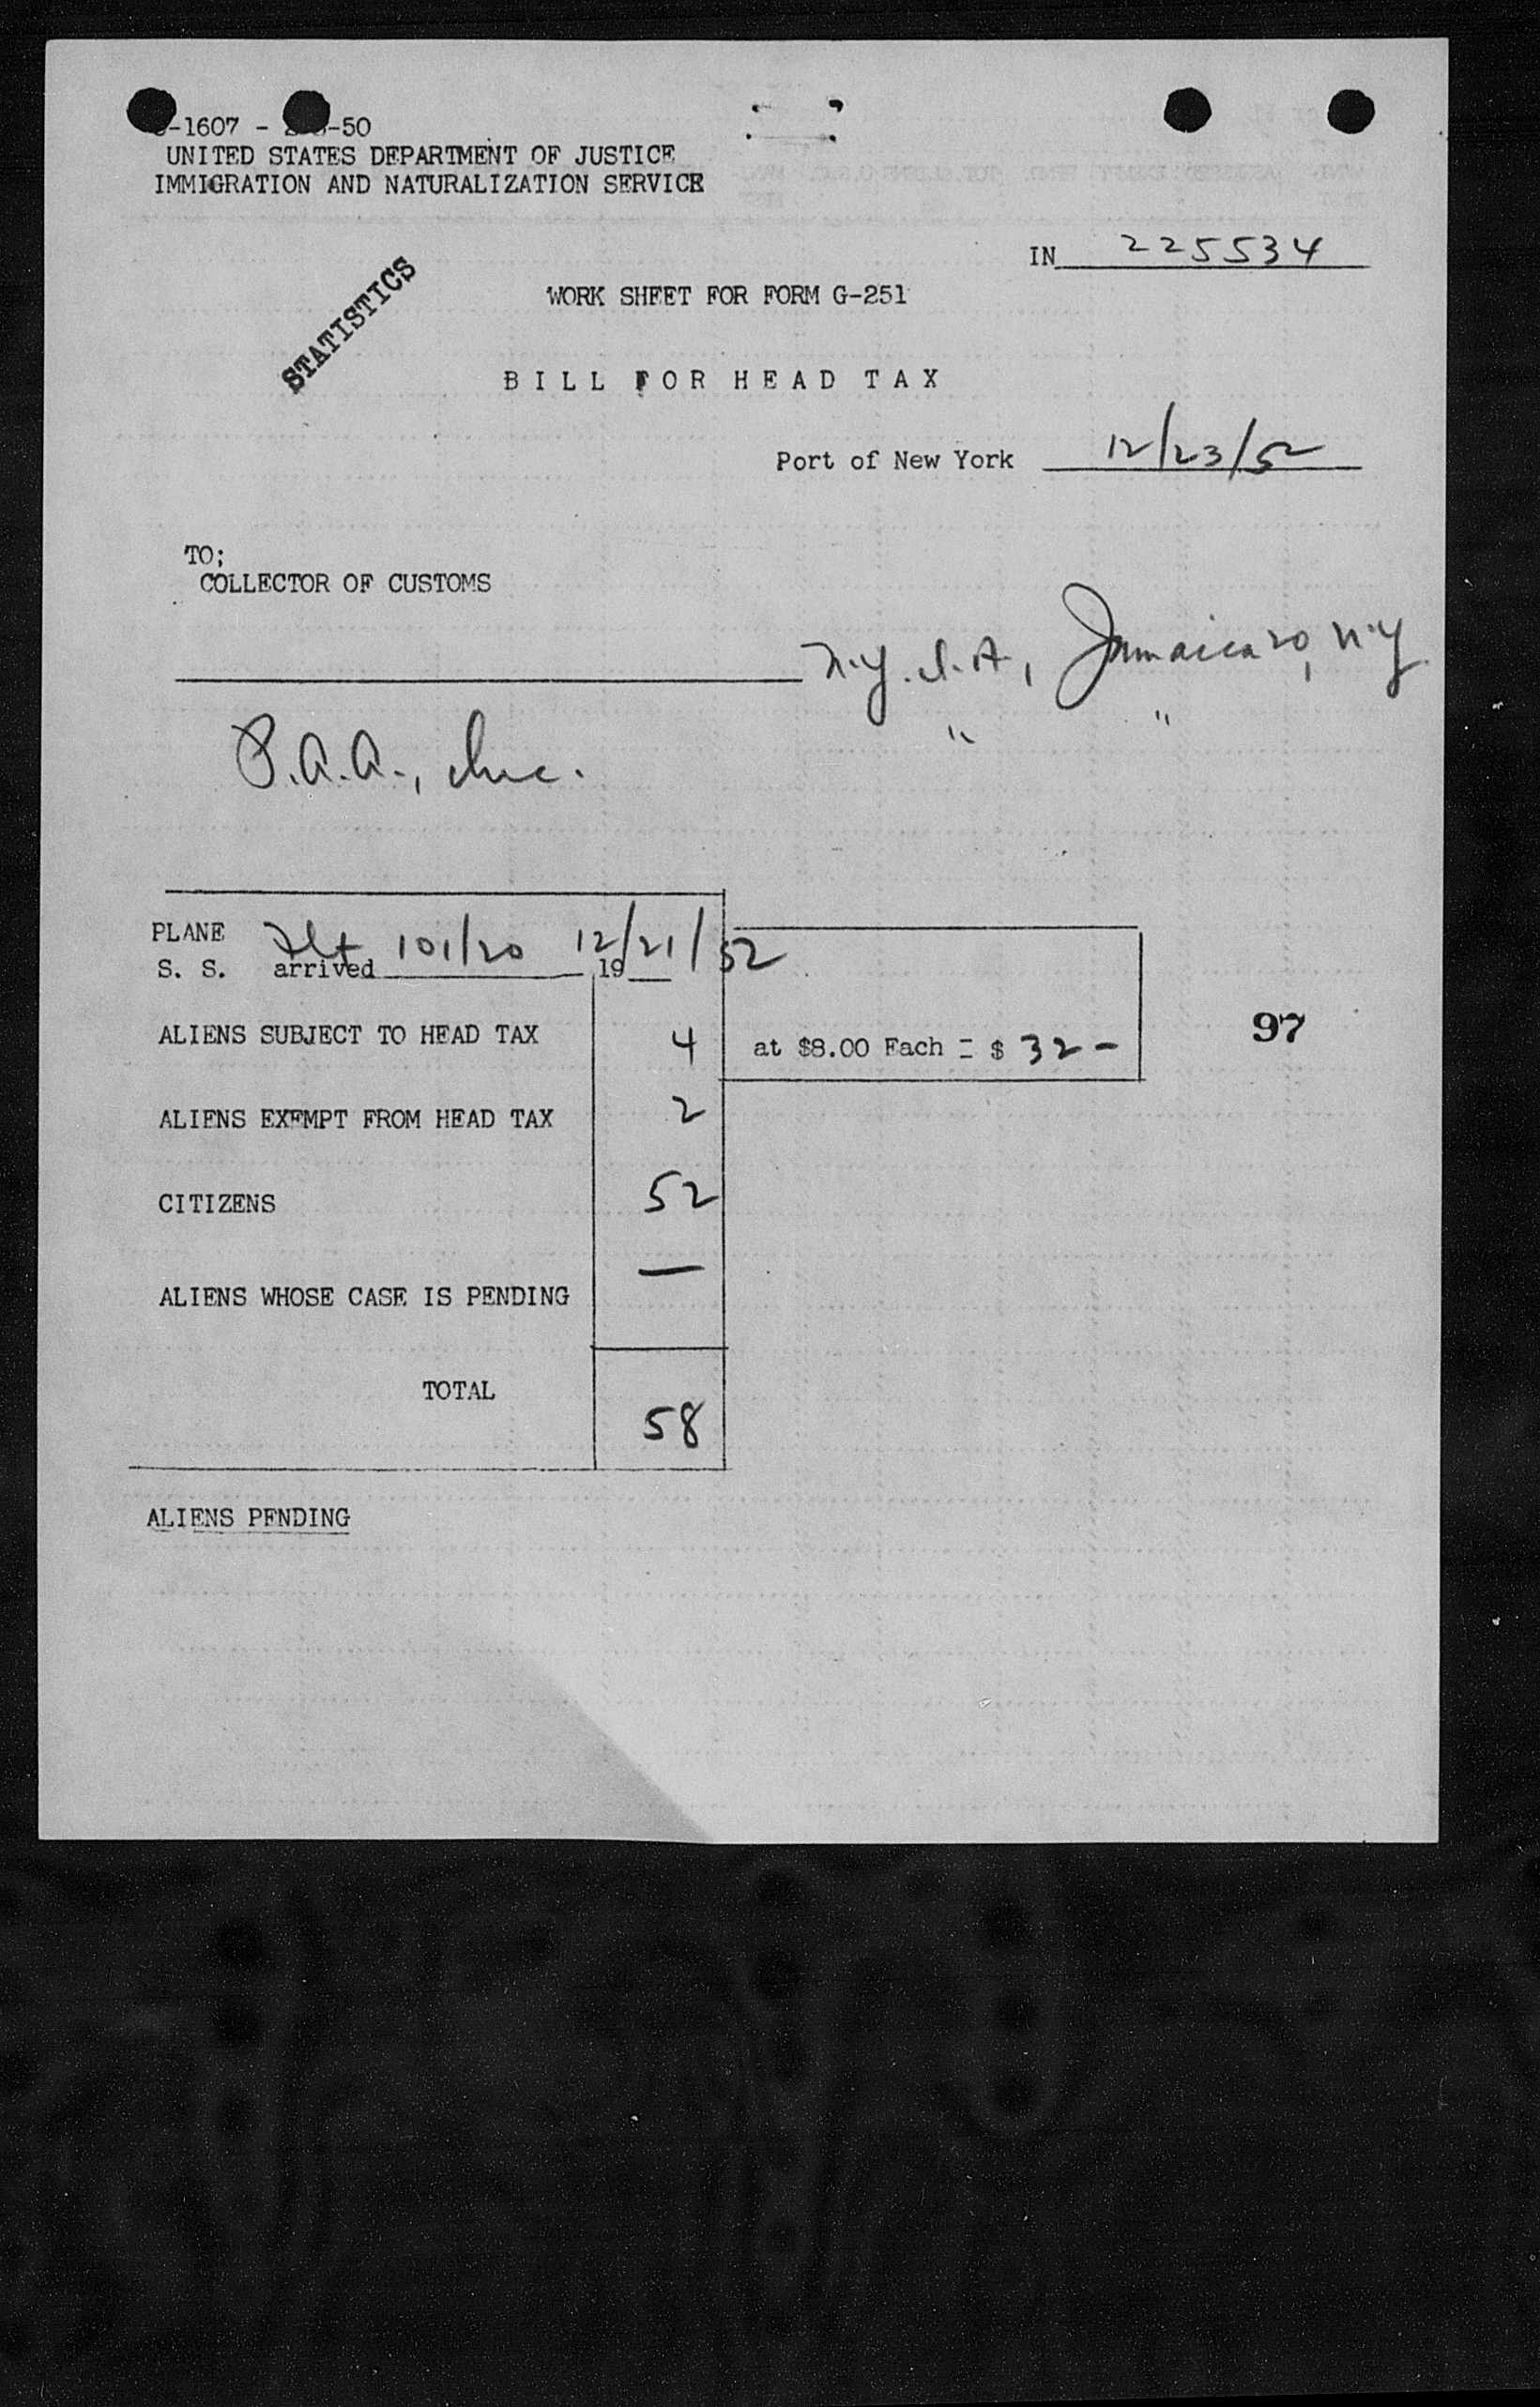 -1607 - -50
UNITED STATES DEPARTMENT OF JUSTICE
IMMIGRATION AND NATURALIZATION SERVICE
IN 225534
STATISTICS
WORK SHEET FOR FORM G-251
BILL FOR HEAD TAX
Port of New York 12/23/52
TO;
COLLECTOR OF CUSTOMS
N.Y. I.A, Jamaica 20, N.Y.
" "
P.A.A., Inc.
PLANE Flt 101/20 12/21/52
S. S. arrived 19
ALIENS SUBJECT TO HEAD TAX 4 at $8.00 Each = $ 32 - 97
ALIENS EXEMPT FROM HEAD TAX 2
CITIZENS 52
ALIENS WHOSE CASE IS PENDING —
TOTAL 58
ALIENS PENDING